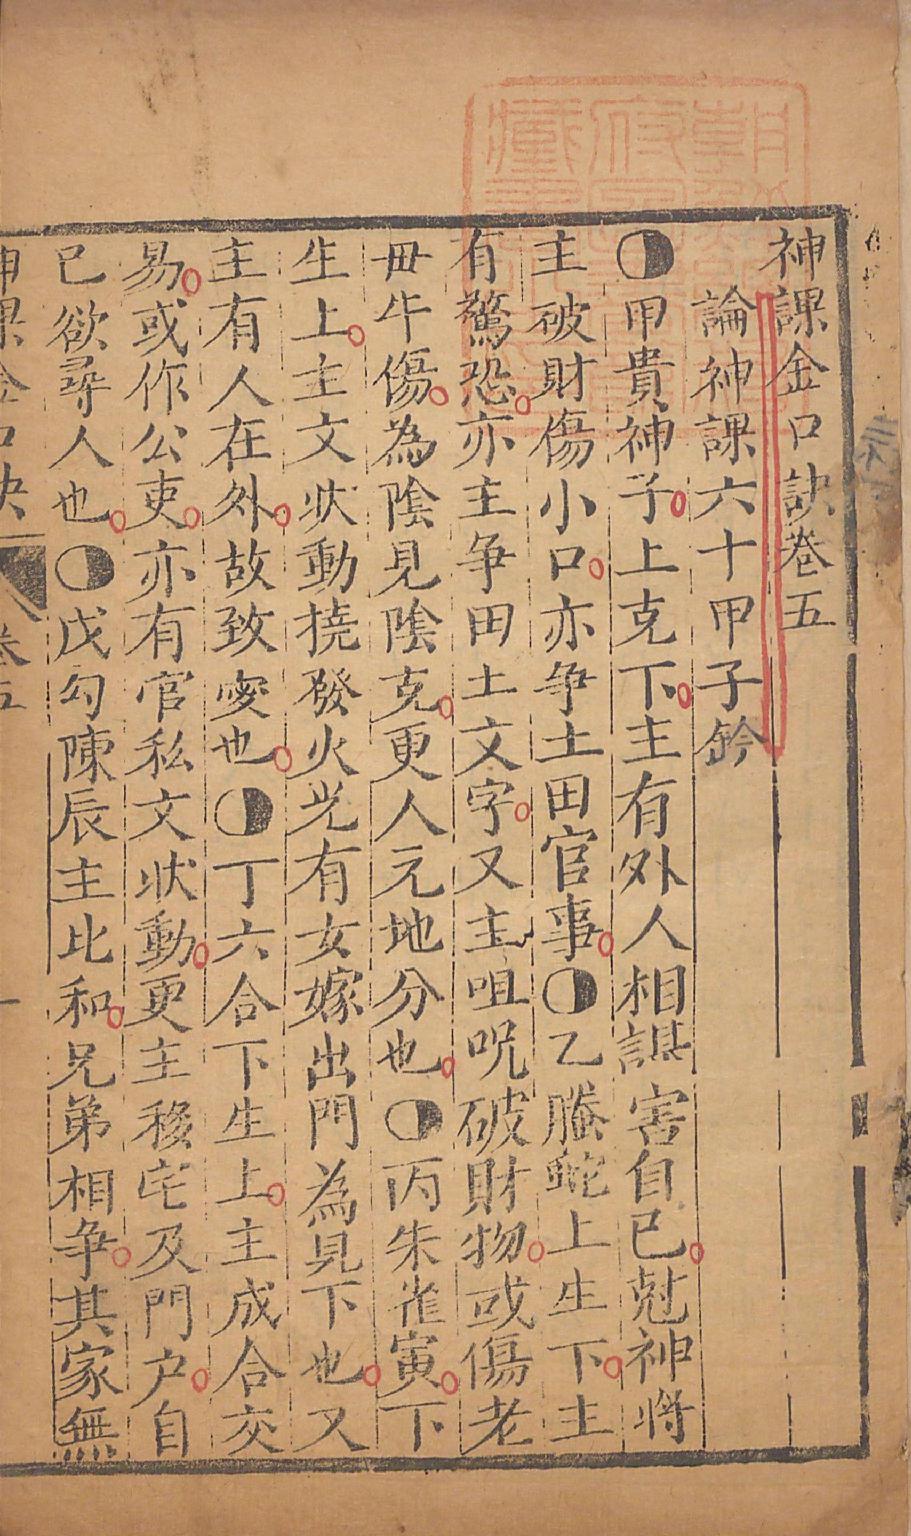 神課金口訣卷五
論神課六十甲子鈐
◗甲貴神子上克下主有外人相謀害自已尅神將
主破財傷小口亦爭土田官事◗乙螣蛇上生下主
有驚恐亦主爭田土文字又主咀呪破財物或傷老
毋牛傷為陰見陰克更人元地分也◗丙朱雀寅下
生上主文状動撓發火光有女嫁出門為見下也又
主有人在外故致変也◗丁六合下生上主成合交
易或作公吏亦有官私文状動更主移宅及門户自
已欲尋人也◗戊勾陳辰主比和兄弟相爭其家無
神課金口訣 卷五 一